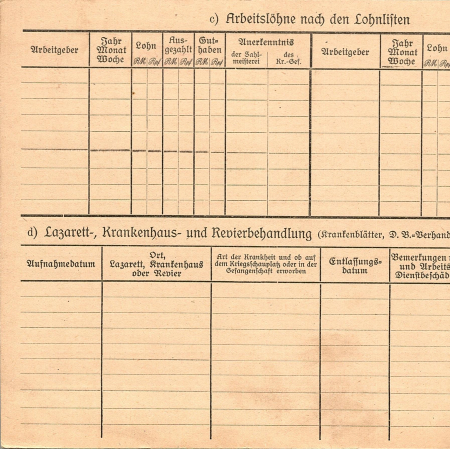 c) Arbeitslöhne nach den Lohnlisten
Arbeitgeber
Jahr
Monat
Woche
Lohn
RM. Rpf
Aus-
gezahlt
RM. Rpf
Gut-
haben
RM. Rpf
Anerkenntnis
der Zahl-
meisterei
des
Kr.-Gef.
Arbeitgeber
Jahr
Monat
Woche
Lohn
RM. Rpf
d) Lazarett-, Krankenhaus- und Revierbehandlung (Krankenblätter, D. B.-Verhand
Aufnahmedatum
Ort,
Lazarett, Krankenhaus
oder Revier
Art der Krankheit und ob auf
dem Kriegsschauplatz oder in der
Gefangenschaft erworben
Entlassungs-
datum
Bemerkungen
und Arbeits
Dienstbeschäd